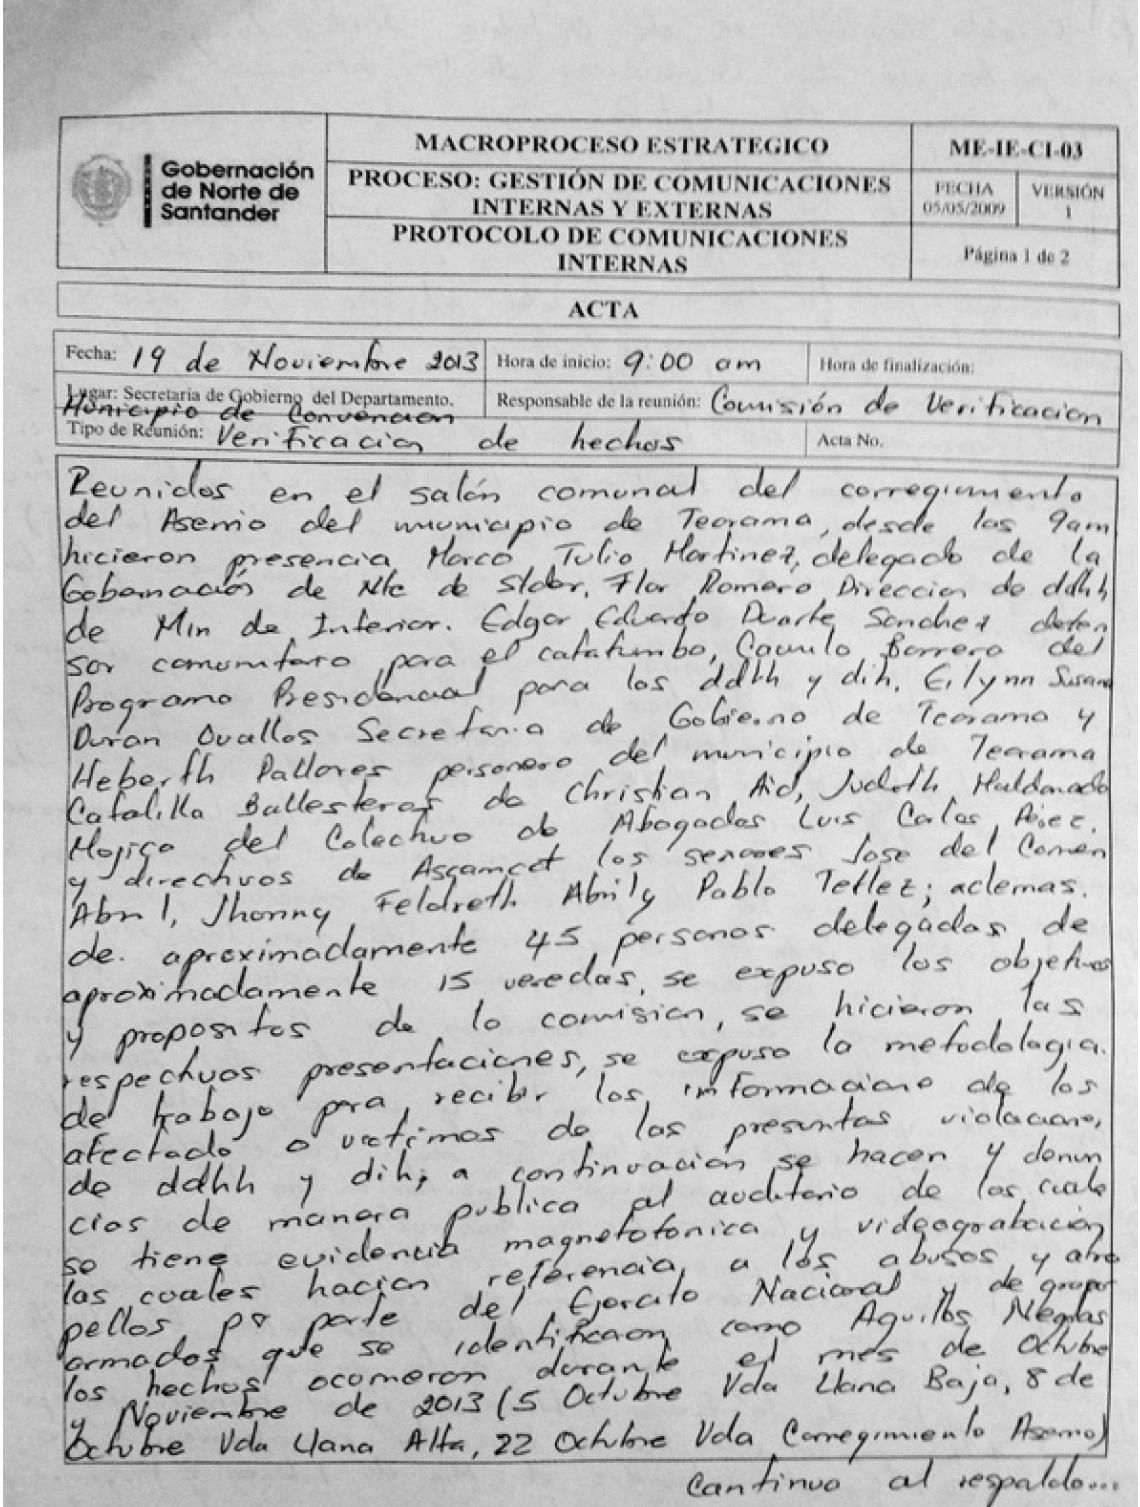 Gobernación
de Norte de
Santander
MACROPROCESO ESTRATEGICO
PROCESO: GESTIÓN DE COMUNICACIONES
INTERNAS Y EXTERNAS
PROTOCOLO DE COMUNICACIONES
INTERNAS
ME-IE-CI-03
FECHA
05/05/2009
VERSIÓN
1
Página 1 de 2
ACTA
Fecha: 19 de Noviembre 2013
Hora de inicio: 9:00 am
Hora de finalización:
Lugar: Secretaria de Gobierno del Departamento.
Municipio de Convencion
Responsable de la reunión: Comisión de Verificacion
Tipo de Reunión: Verificacion de hechos
Acta No.
Reunidos en el salón comunal del corregimiento
del Aserrio del municipio de Teorama, desde las 9am
hicieron presencia Marco Tulio Martinez, delegado de la
Gobernación de Nte de Stder, Flor Romero Direccion de ddhh
de Min de Interior. Edgar Eduardo Duarte Sanchez defen
sor comunitaro para el catatumbo, Camilo Borrero del
Programa Presidencial para los ddhh y dih, Eilynn Susana
Duran Ovallos Secretaria de Gobierno de Teorama y
Heberth Pallares personero del municipio de Teorama
Ballesteros de Christian Aid, Judith Maldonado
Mojica del Colectivo de Abogados Luis Carlos Pérez.
y directivos de Ascamcat los señores Jose del Carmen
Abril, Jhonny Abril y Pablo Tellez; ademas.
de. aproximadamente 45 personas delegadas de
aproximadamente 15 veredas, se expuso los objetivos
y propositos de la comision, se hicieron las
respectivas presentaciones, se expuso la metodologia.
de trabajo para recibir las informacione de los
afectado o victimas de las presuntas violacione,
de ddhh y dih, a continuacion se hacen y denun
cias de manera publica al auditorio de las cuale
se tiene evidencia magnetofonica y videograbación
las cuales hacian referencia a los abusos y atro
pellos por parte del Ejercito Nacional y de grupos
armados que se identificaon como Aguilas Negras
los hechos ocurrieron durante el mes de Octubre
y Noviembre de 2013 (5 Octubre Vda Llana Baja, 8 de
Octubre Vda Llana Alta, 22 Octubre Vda Corregimiento Aserrio)
Continuo al respaldo...